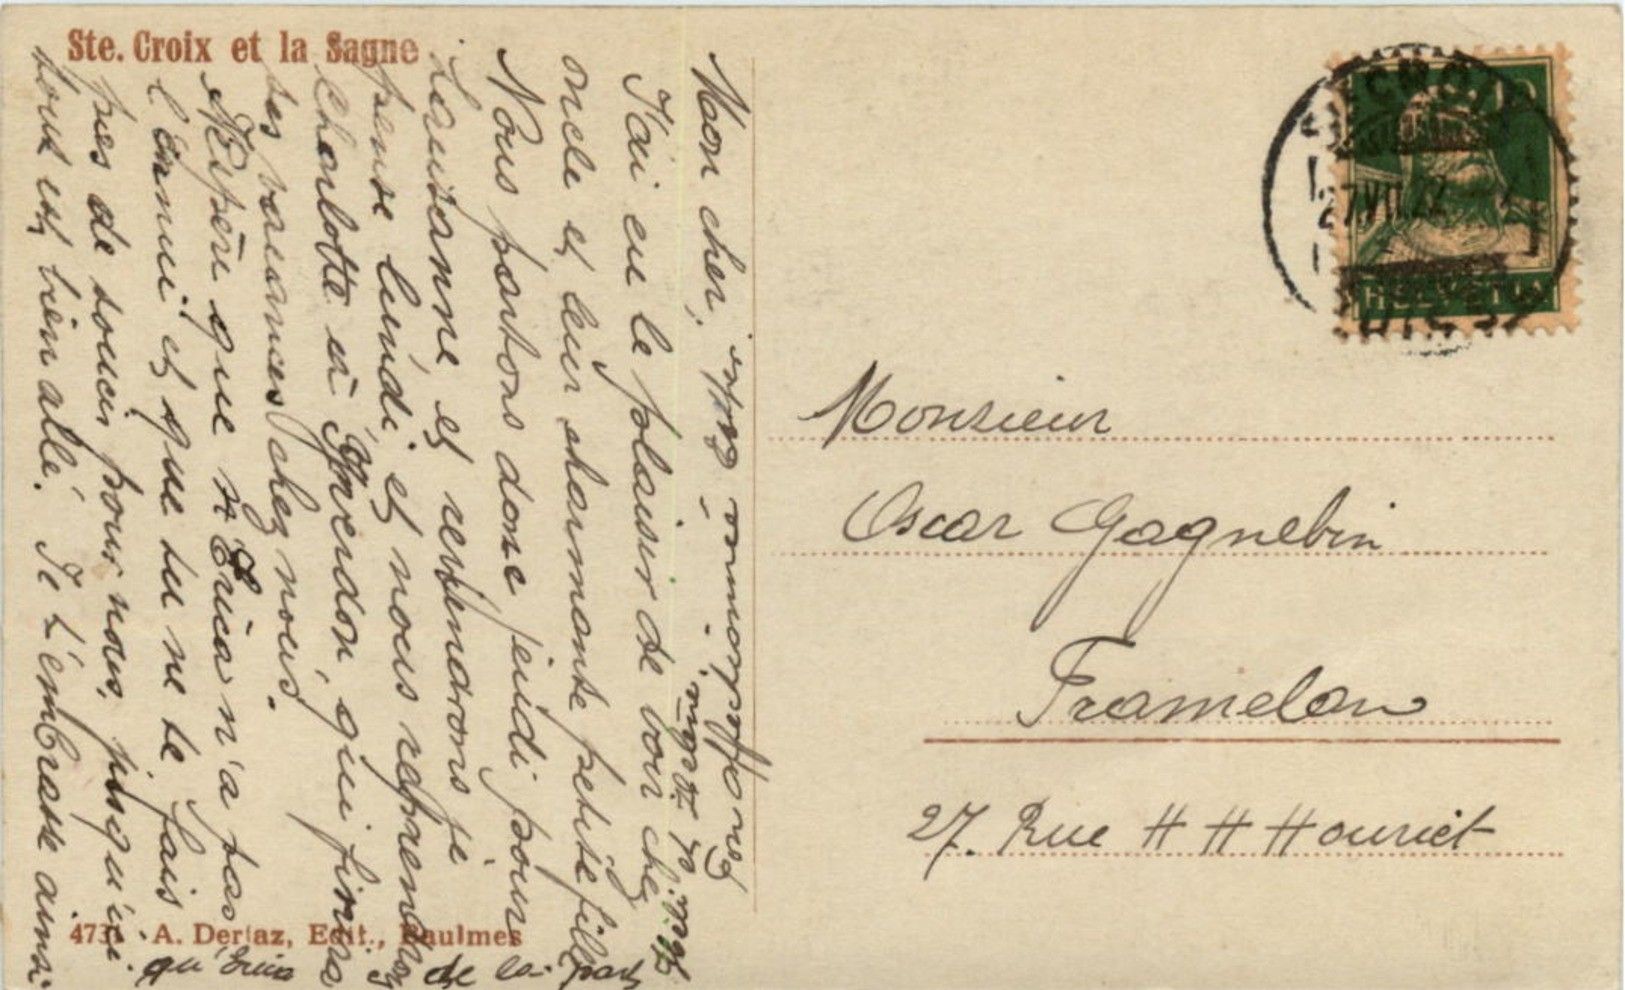 Ste. Croix et la Sagne
Mon cher,
J'ai eu le plaisir de voir chez
oncle et leur charmante petite fille
Nous partons donc jeudi pour
Lausanne et reviendrons je
pense lundi et nous reprendrons
Charlotte à Yverdon, qui finira
ses vacances chez nous.
J'espère que Erica n'a pas
l'ennui et que tu ne te fais
pas de souci pour nous, jusqu'ici
tout est bien allé. Je t'embrasse ainsi
qu'Erica et de la part
4731 A. Deriaz, Edit., Baulmes
27.VII.22
HELVETIA
Monsieur
Oscar Gagnebin
Tramelan
27. Rue H H Houriet